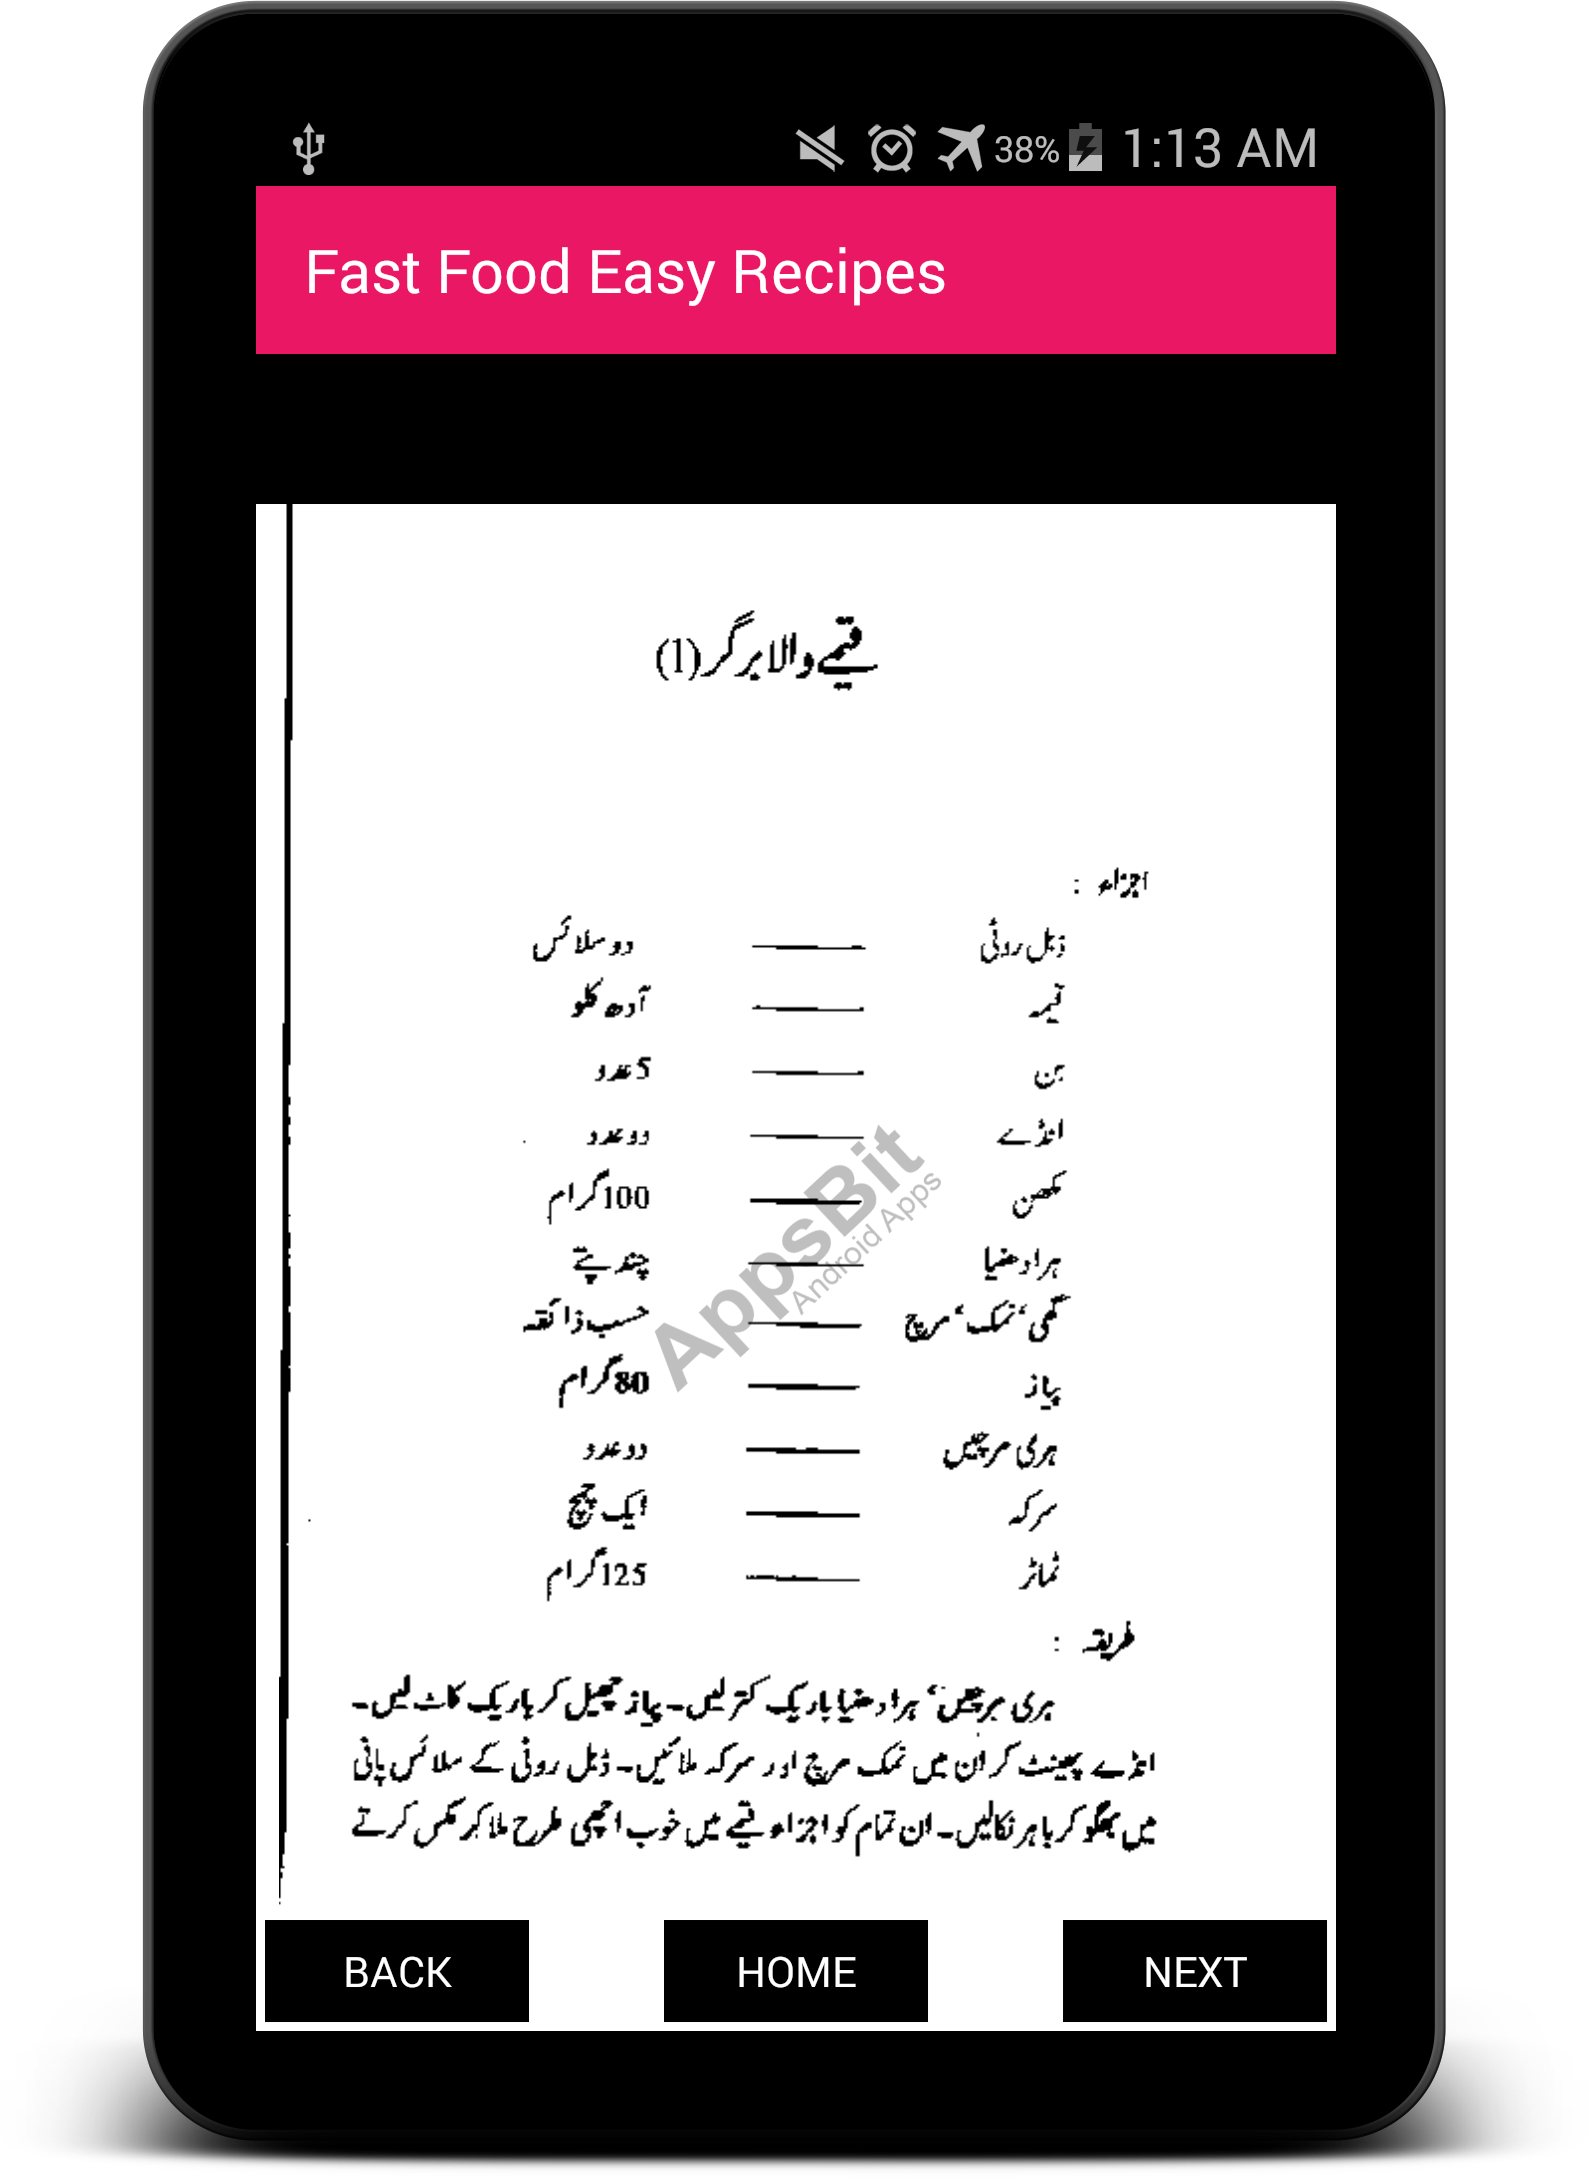 38% 1:13 AM
Fast Food Easy Recipes
قیمے والا برگر (1)
اجزاء :
ڈبل روٹی ——— دو سلائس
قیمہ ——— آدھ کلو
بن ——— 5 عدد
انڈے ——— دو عدد
مکھن ——— 100 گرام
ہرا دھنیا ——— چند پتے
گھی، نمک، مرچ ——— حسب ذائقہ
پیاز ——— 80 گرام
ہری مرچیں ——— دو عدد
سرکہ ——— ایک چمچ
ٹماٹر ——— 125 گرام
طریقہ :
ہری مرچیں، ہرا دھنیا باریک کتر لیں۔ پیاز چھیل کر باریک کاٹ لیں۔
انڈے پھینٹ کر ان میں نمک مرچ اور سرکہ ملائیں۔ ڈبل روٹی کے سلائس پانی
میں بھگو کر باہر نکالیں۔ ان تمام کو اجزاء قیمے میں خوب اچھی طرح ملا کر مکس کرتے
AppsBit
Android Apps
BACK HOME NEXT